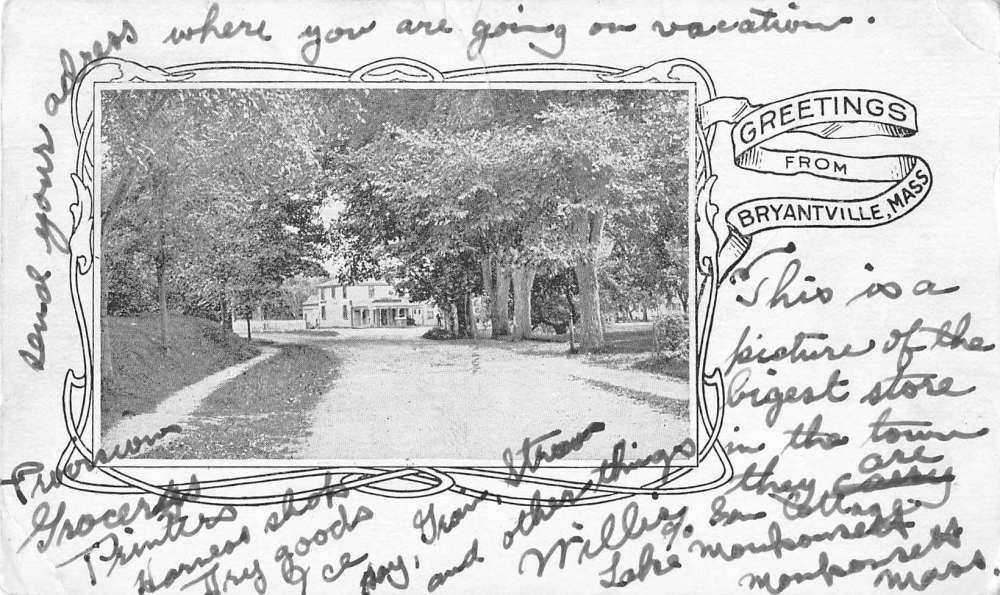 send your adress where you are going on vacation.
GREETINGS
FROM
BRYANTVILLE, MASS
This is a
picture of the
bigest store
in the town
they are
Grocerys
Printers
Harness shop
Dry goods
Ice
Hay, Grain, Straw
and other things
Willie
Cottage
Lake Monponsett
Monponsett
Mass.